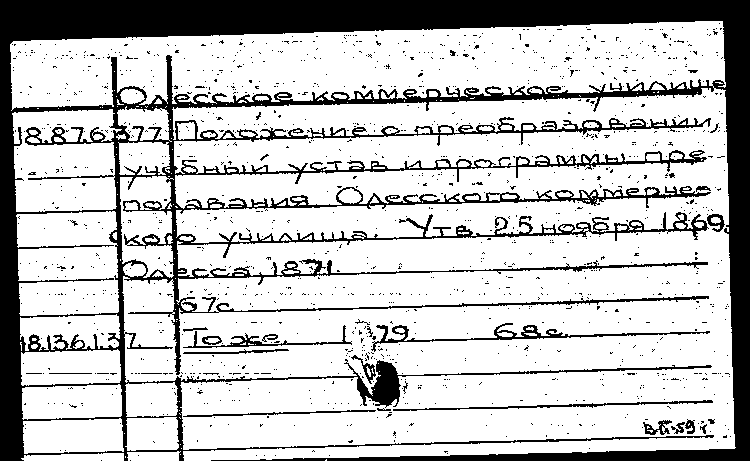 Одесское коммерческое училище
18.87.6.377. Положение о преобразовании,
учебный устав и программы пре
подавания Одесского коммерчес
кого училища. Утв. 25 ноября 1869.
Одесса, 1871.
67с.
18.136.1.37. То же. 79. 68с.